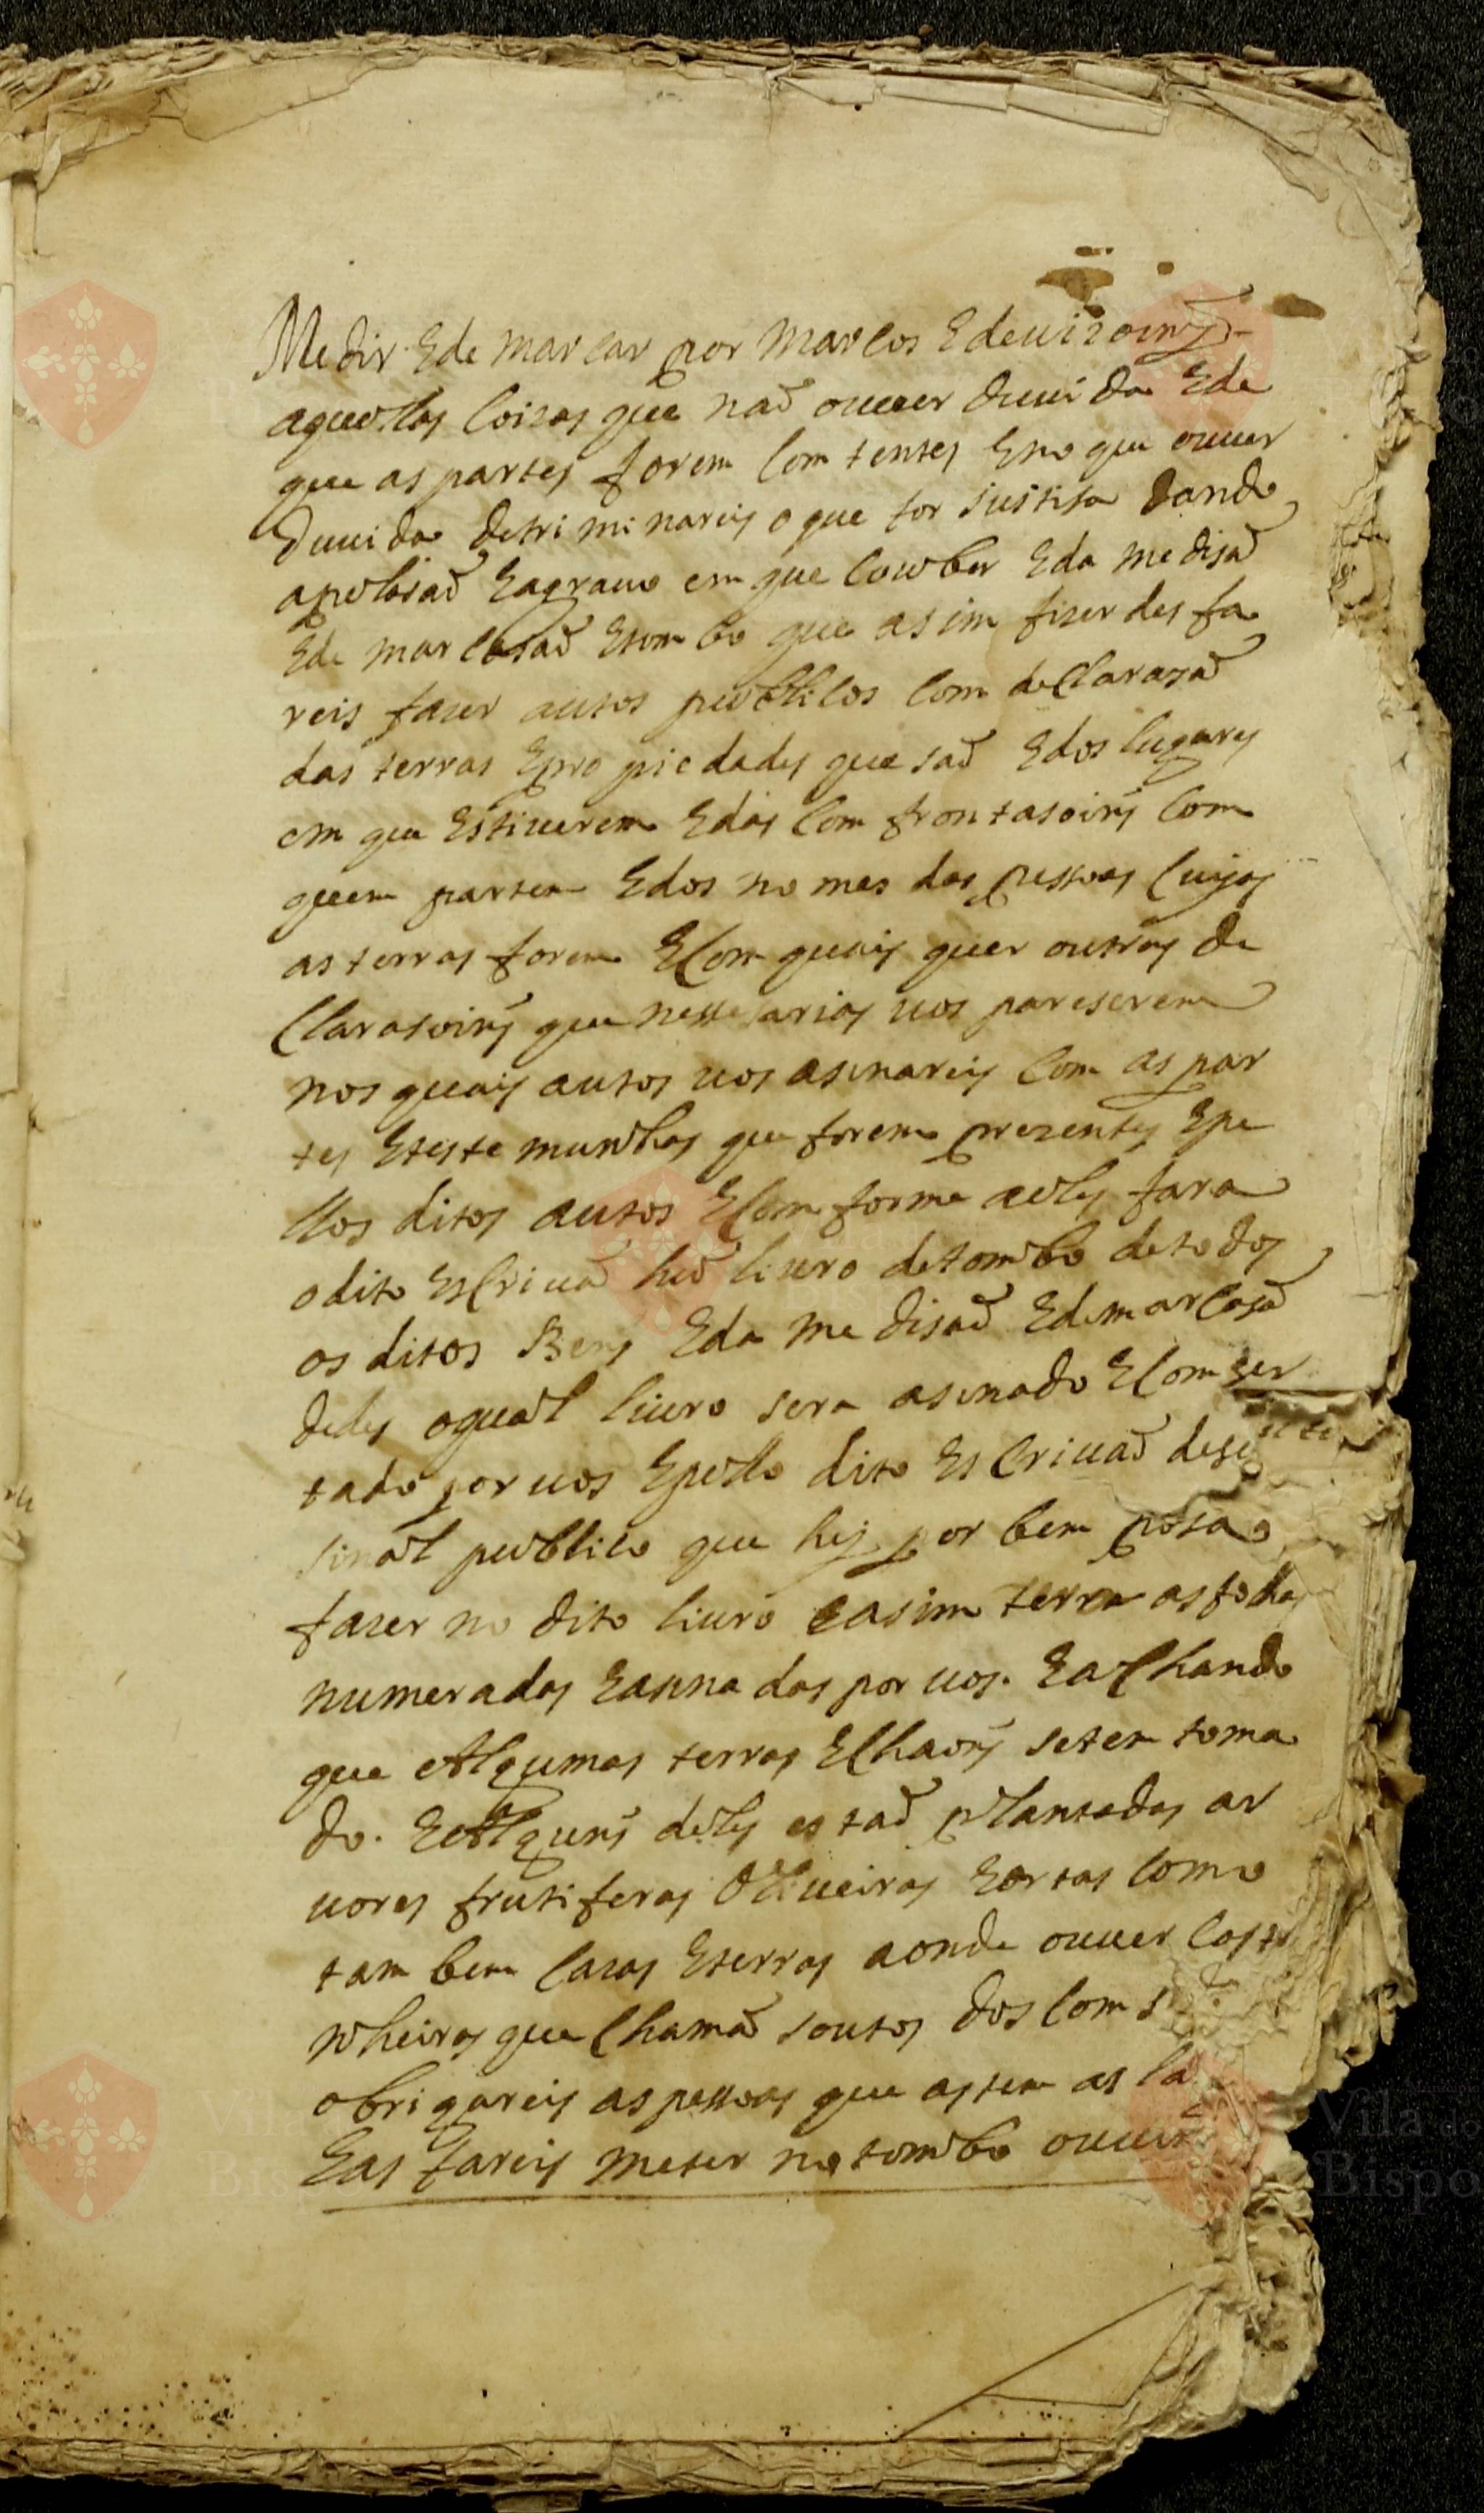 Medir E de marcar por Marcos E deuizoins
aquellas Coizas que naõ ouuer duuida E de
que as partes forem Comtentes E no que ouuer
duuida detriminareis o que for Justisa dando
apelasaõ E agrauo em que Couber E da medisaõ
E de marcasaõ E tombo que asim fizerdes fa
reis fazer autos publicos Com declarasaõ
das terras E propiedades que saõ E dos lugares
em que Estiuerem E das Comfrontasoins Com
quem partem E dos nomes das pessoas Cuijas
as terras forem E Com quais quer outras de
Clarasoins que nessesarias uos pareserem
nos quais autos uos asinareis Com as par
tes E testemunhas que forem prezentes E pe
llos ditos autos E Comforme aeles fara
o dito EsCriuaõ hũ liuro de tombo de todos
os ditos Bens E da medisaõ E demarCasaõ
deles o qual liuro sera asinado E Comser
tado por uos E pello dito EsCriuaõ de seu
sinal publico que hej por bem posa
fazer no dito liuro E asim tera as folhas
numeradas E asinadas por uos. E aChando
que Algumas terras E Chaons se tem toma
do. E Alguns deles estaõ plantadas ar
uores frutiferas Oliueiras E ortas Como
tam bem Cazas E terras aonde ouuer Casta
nheiros que Chamaõ soutos dos Com
obrigareis as pessoas que as tem as
E as fareis meter no tombo ouuin
Vila do
Bispo